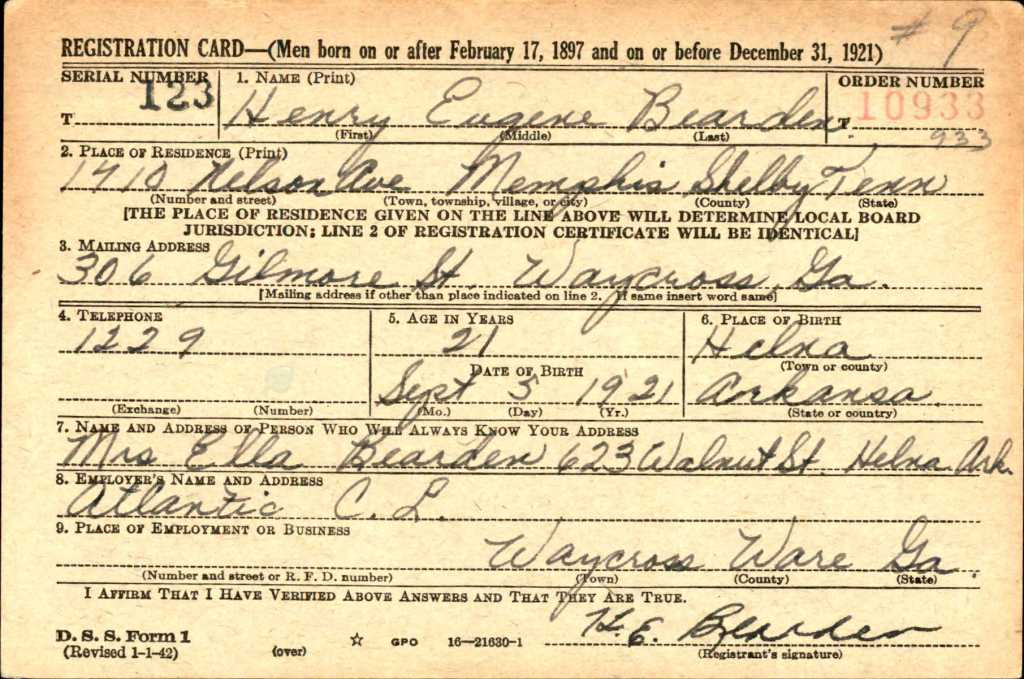 # 9
REGISTRATION CARD—(Men born on or after February 17, 1897 and on or before December 31, 1921)
SERIAL NUMBER 1. NAME (Print) ORDER NUMBER
123 Henry Eugene Bearden 10933
T T
(First) (Middle) (Last) 933
2. PLACE OF RESIDENCE (Print)
1410 Nelson Ave Memphis Shelby Tenn
(Number and street) (Town, township, village, or city) (County) (State)
[THE PLACE OF RESIDENCE GIVEN ON THE LINE ABOVE WILL DETERMINE LOCAL BOARD
JURISDICTION; LINE 2 OF REGISTRATION CERTIFICATE WILL BE IDENTICAL]
3. MAILING ADDRESS
306 Gilmore St. Waycross, Ga.
[Mailing address if other than place indicated on line 2. If same insert word same]
4. TELEPHONE 5. AGE IN YEARS 6. PLACE OF BIRTH
1229 21 Helna
DATE OF BIRTH (Town or county)
Sept 5 1921 Arkansa.
(Exchange) (Number) (Mo.) (Day) (Yr.) (State or country)
7. NAME AND ADDRESS OF PERSON WHO WILL ALWAYS KNOW YOUR ADDRESS
Mrs Ella Bearden 623 Walnut St. Helna Ark.
8. EMPLOYER'S NAME AND ADDRESS
Atlantic C. L.
9. PLACE OF EMPLOYMENT OR BUSINESS
Waycross Ware Ga.
(Number and street or R. F. D. number) (Town) (County) (State)
I AFFIRM THAT I HAVE VERIFIED ABOVE ANSWERS AND THAT THEY ARE TRUE.
H. E. Bearden
D. S. S. Form 1
(Revised 1-1-42) (over) ☆ GPO 16—21630-1 (Registrant's signature)